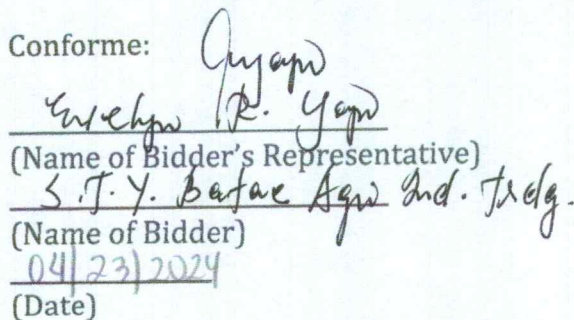 Conforme:
Evelyn R. Yap
(Name of Bidder's Representative)
S.T.Y. Batac Agro Ind. Trdg.
(Name of Bidder)
04/23/2024
(Date)